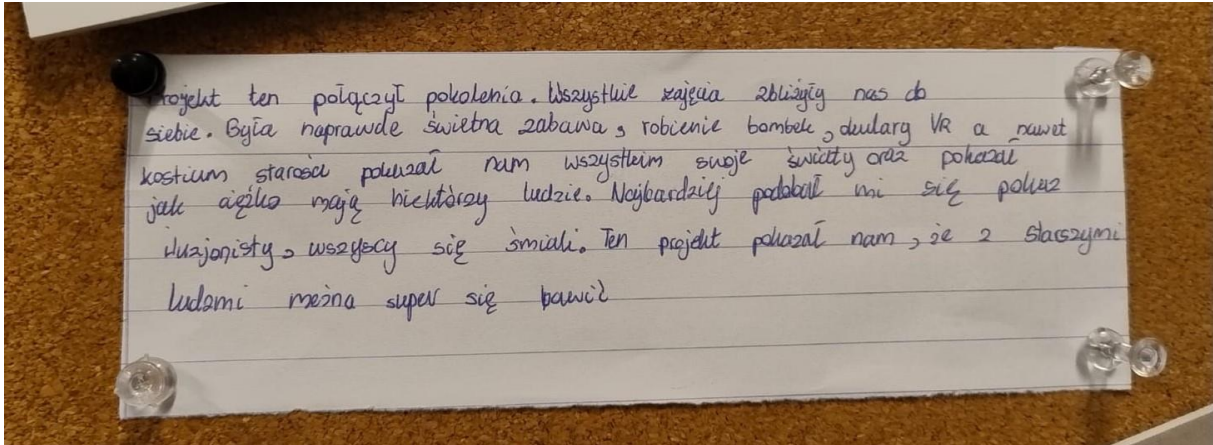 Projekt ten połączył pokolenia. Wszystkie zajęcia zbliżyły nas do
siebie. Była naprawde świetna zabawa, robienie bombek, okulary VR a nawet
kostium starości pokazał nam wszystkim swoje światy oraz pokazał
jak ciężko mają niektórzy ludzie. Najbardziej podobał mi się pokaz
iluzjonisty, wszyscy się śmiali. Ten projekt pokazał nam, że z starszymi
ludzmi można super się bawić